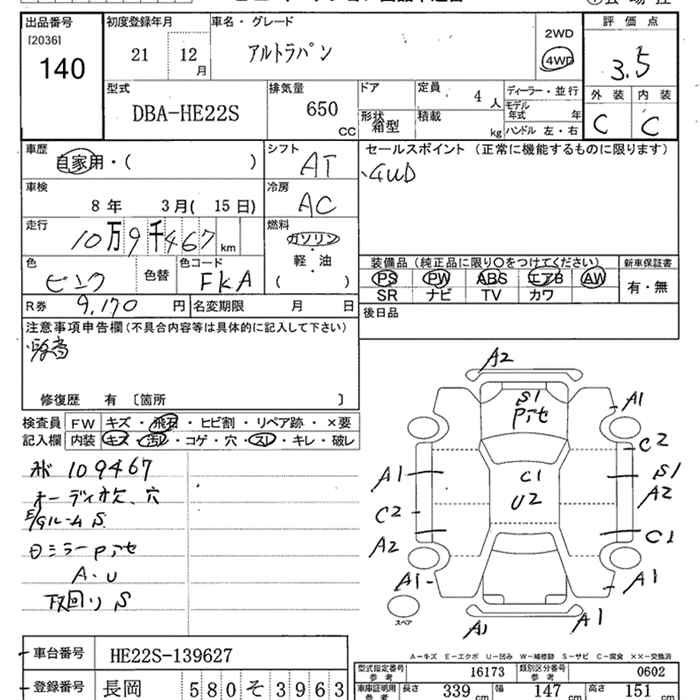 出品番号 初度登録年月 車名・グレード 評価点
[2036]
140
21 12月 アルトラパン 2WD 4WD 3.5
型式 排気量 ドア 定員 ディーラー・並行 外装 内装
DBA-HE22S 650 CC 4人 モデル年式 年 C C
形状 箱型 積載 kg ハンドル 左・右
車歴 シフト セールスポイント (正常に機能するものに限ります)
自家用・( ) AT ・4WD
車検 冷房
8年 3月(15日) AC
走行 燃料
10万9千467km ガソリン
軽・油
( )
色 色替 色コード 装備品 (純正品に限り○をつけてください) 新車保証書
ピンク FKA PS PW ABS エアB AW 有・無
SR ナビ TV カワ
R券 9,170円 名変期限 月 日 後日品
注意事項申告欄 (不具合内容等は具体的に記入して下さい)
修復歴 有 〔箇所 〕
検査員記入欄 FW キズ・飛石・ヒビ割・リペア跡・×要
内装 キズ・汚レ・コゲ・穴・スレ・キレ・破レ
109467
オーディオ欠、穴
E/Gルーム S
ミラー Pアセ
A・U
下回り S
A2
S1
Pアセ
A1
C2
A1
C1
S1
U2
A2
C2
C1
A2
A1
A1
スペア
A1
A1
A-キズ E-エクボ U-凹み W-補修跡 S-サビ C-腐食 ××-交換済
車台番号 HE22S-139627
型式指定番号 参考 16173 類別区分番号 参考 0602
登録番号 長岡 580そ3963
車庫証明用 参考 長さ 339cm 幅 147cm 高さ 151cm